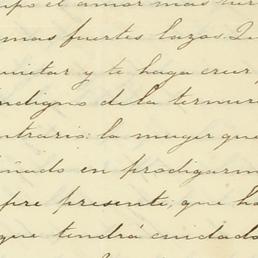 upo el amor mas
mas fuertes lazos. Qu
uietar y te haga creer
indigno de la ternura
ntrario: la muger que
ñado en prodigarm
pre presente; que ha
que tendrá cuidado